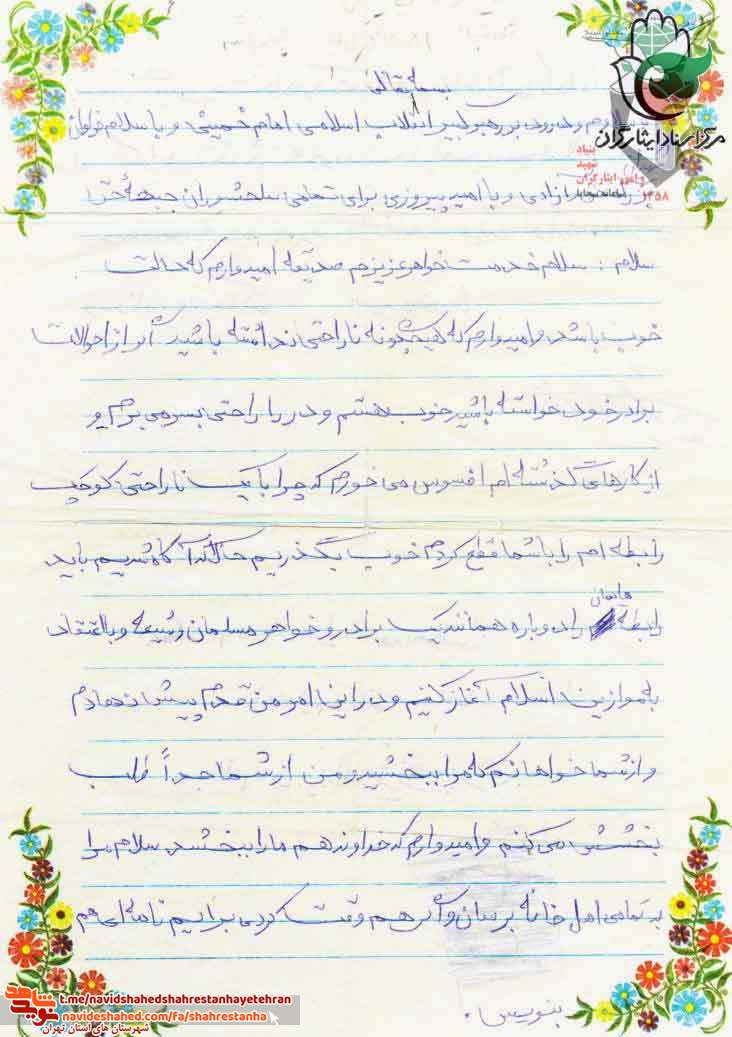 بسمه تعالی
سلام و درود بر رهبر کبیر انقلاب اسلامی امام خمینی و با سلام فراوان
آزادی و با امید پیروزی برای تمامی سلحشوران جبهه حق
سلام : سلام خدمت خواهر عزیزم صدیقه امیدوارم که حالت
خوب باشد و امیدوارم که هیچگونه ناراحتی نداشته باشید اگر از احوالات
برادر خود خواسته باشید خوب هستم و در راحتی بسر می برم و
از کارهای گذشته ام افسوس می خورم که چرا با یک ناراحتی کوچک
رابطه ام را با شما قطع کردم خوب بگذریم حال که آگاه شدیم باید
رابطه هایمان را دوباره همانند یک برادر و خواهر مسلمان و شیعه و با اعتقاد
به موازین اسلام آغاز کنیم و در این امر من قدم پیش نهادم
و از شما خواهانم که مرا ببخشید و من از شما جداً طلب
بخشش می کنم و امیدوارم که خداوند هم ما را ببخشد سلام مرا
به تمامی اهل خانه برسان و اگر هم وقت کردی برایم نامه ای هم
بنویس .
مرکز اسناد ایثارگران
بنیاد
شهید
و امور ایثارگران
۱۳۵۸
نوید شاهد
t.me/navidshahedshahrestanhayetehran
navideshahed.com/fa/shahrestanha
شهرستان های استان تهران